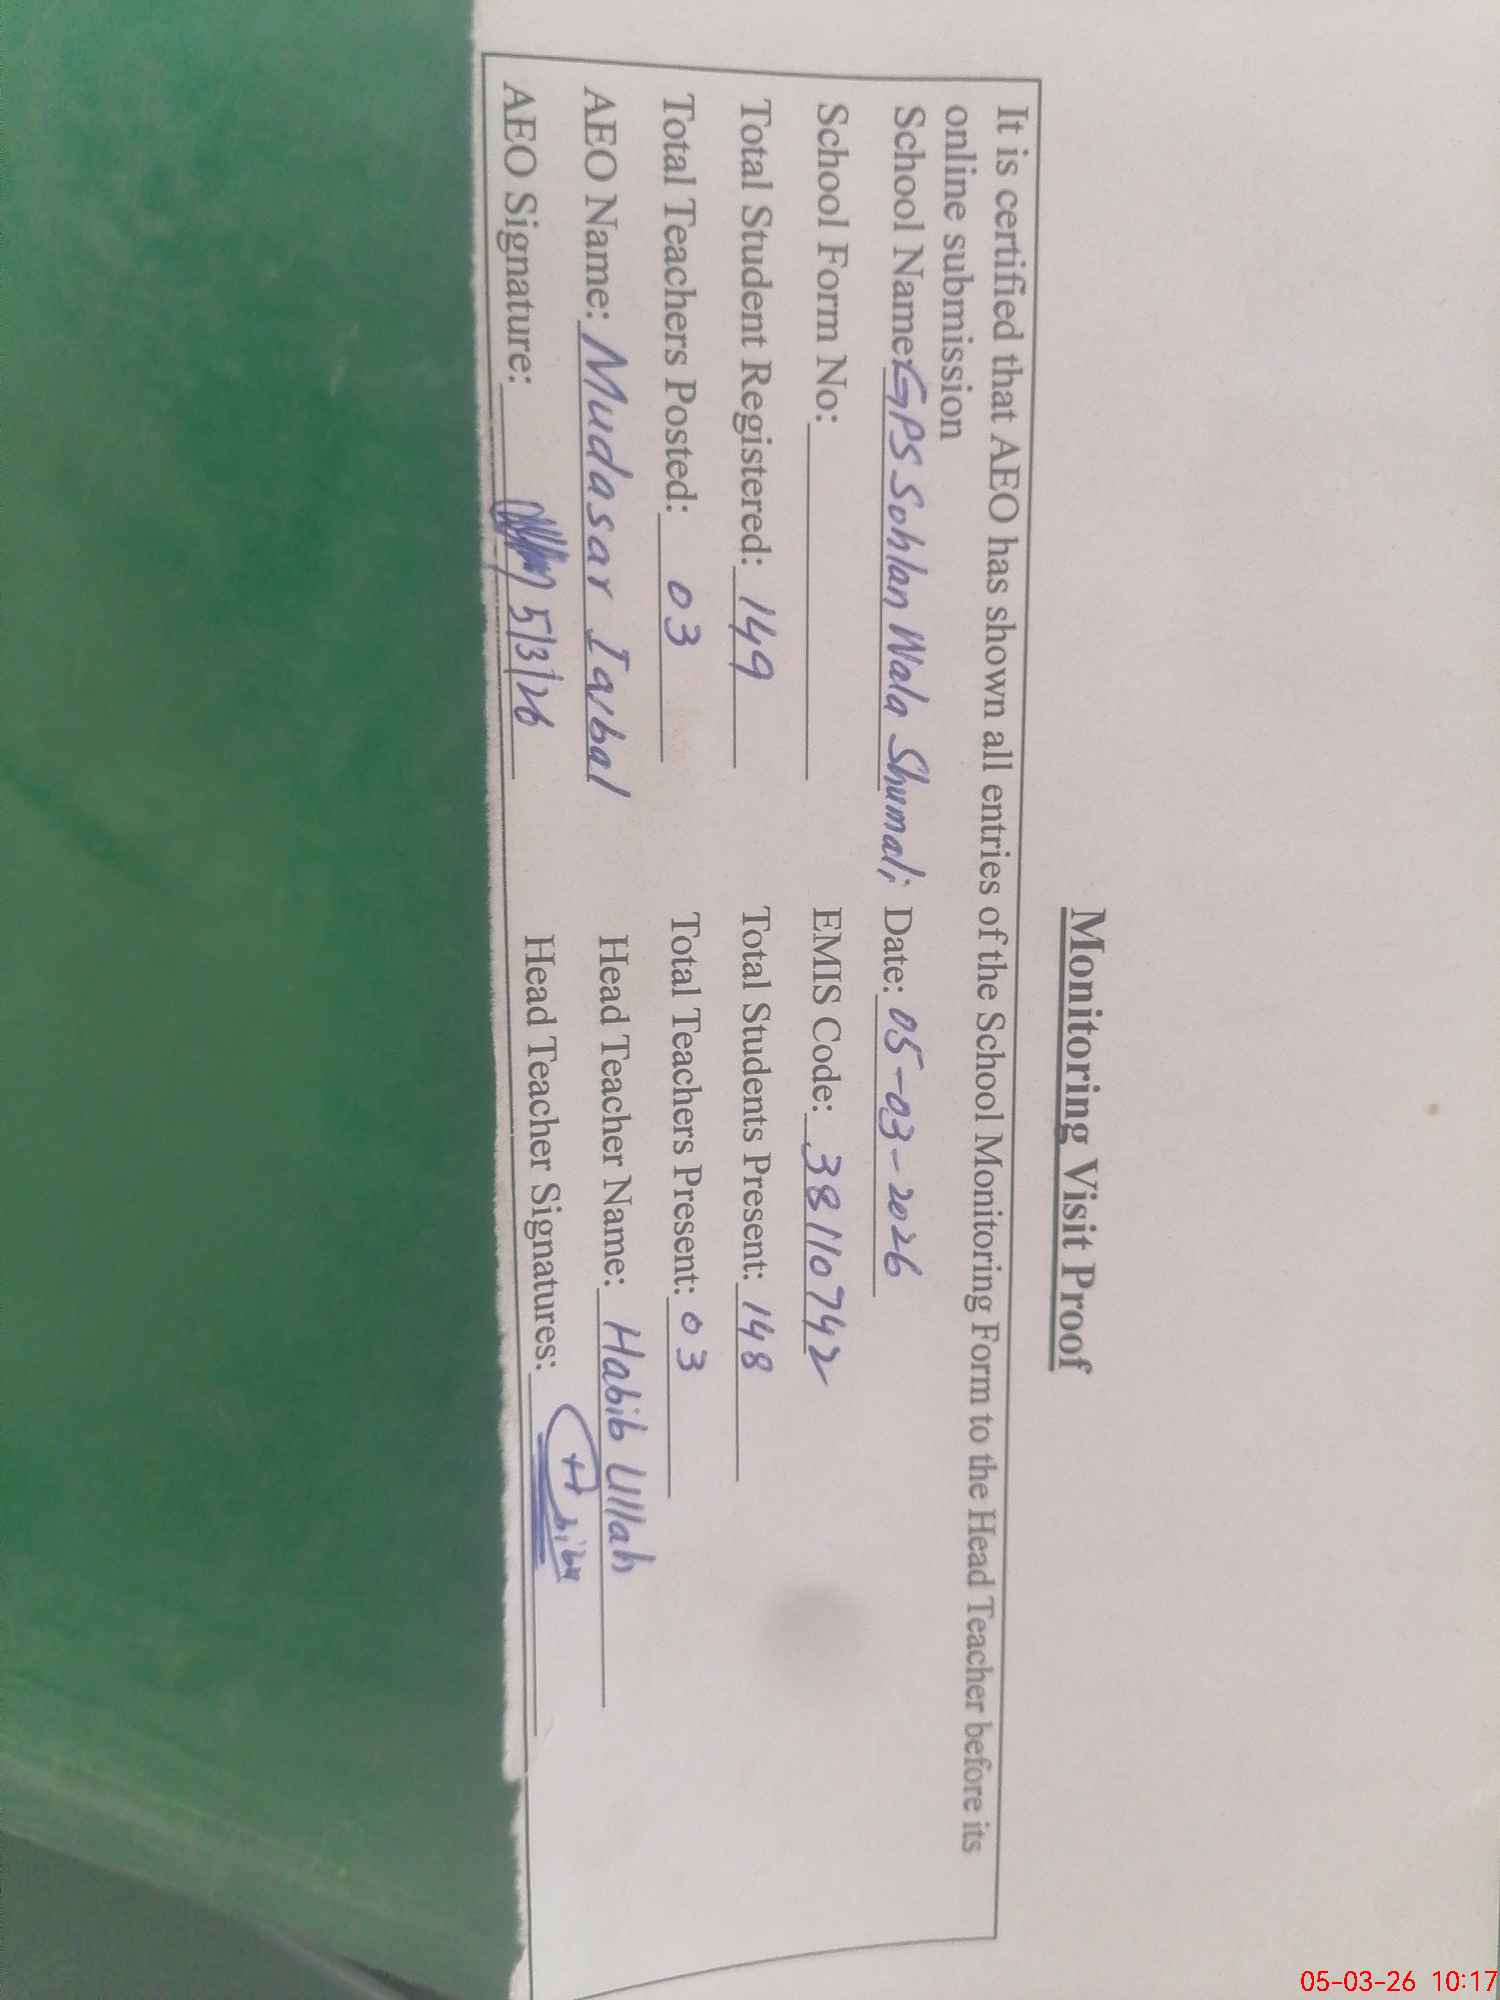 Monitoring Visit Proof
It is certified that AEO has shown all entries of the School Monitoring Form to the Head Teacher before its
online submission
School Name: GPS Sohlan Wala Shumali Date: 05-03-2026
School Form No: EMIS Code: 38110742
Total Student Registered: 149 Total Students Present: 148
Total Teachers Posted: 03 Total Teachers Present: 03
AEO Name: Mudasar Iqbal Head Teacher Name: Habib Ullah
AEO Signature: 5/3/26 Head Teacher Signatures:
05-03-26 10:17